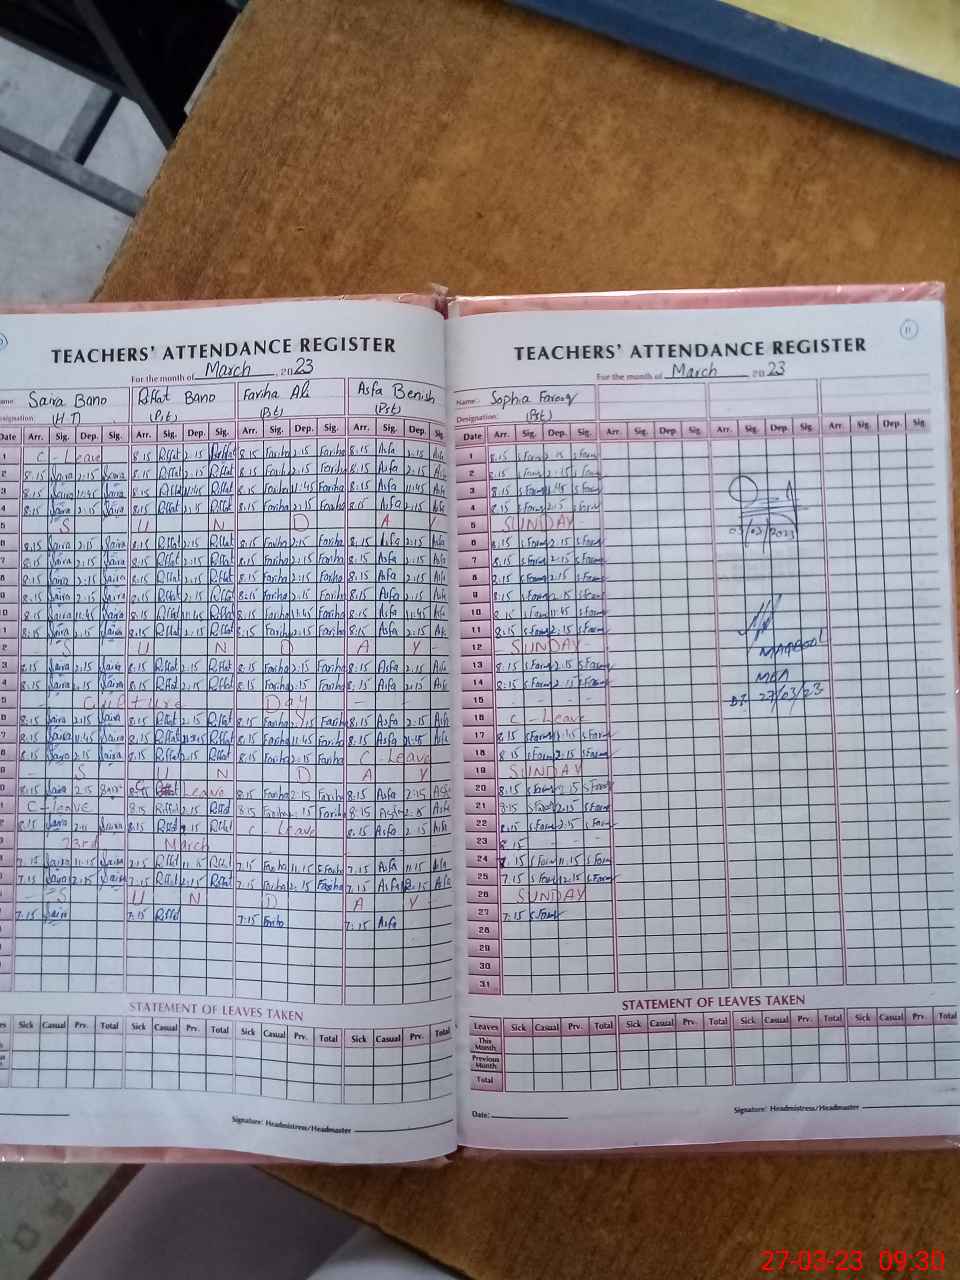 TEACHERS' ATTENDANCE REGISTER
For the month of March, 2023
Saira Bano Riffat Bano Fariha Ali Asfa Benish
(H T) (Pst) (Pst) (Pst)
Date Arr. Sig. Dep. Sig. Arr. Sig. Dep. Sig. Arr. Sig. Dep. Sig. Arr. Sig. Dep. Sig.
1 C - Leave 8.15 Riffat 2.15 Riffat 8.15 Fariha 2.15 Fariha 8.15 Asfa 2.15 Asfa
2 8.15 Saira 2.15 Saira 8.15 Riffat 2.15 Riffat 8.15 Fariha 2.15 Fariha 8.15 Asfa 2.15 Asfa
3 8.15 Saira 11.45 Saira 8.15 Riffat 11.45 Riffat 8.15 Fariha 11.45 Fariha 8.15 Asfa 11.45 Asfa
4 8.15 Saira 2.15 Saira 8.15 Riffat 2.15 Riffat 8.15 Fariha 2.15 Fariha 8.15 Asfa 2.15 Asfa
5 S U N D A Y
8.15 Saira 2.15 Saira 8.15 Riffat 2.15 Riffat 8.15 Fariha 2.15 Fariha 8.15 Asfa 2.15 Asfa
7 8.15 Saira 2.15 Saira 8.15 Riffat 2.15 Riffat 8.15 Fariha 2.15 Fariha 8.15 Asfa 2.15 Asfa
8 8.15 Saira 2.15 Saira 8.15 Riffat 2.15 Riffat 8.15 Fariha 2.15 Fariha 8.15 Asfa 2.15 Asfa
9 8.15 Saira 2.15 Saira 8.15 Riffat 2.15 Riffat 8.15 Fariha 2.15 Fariha 8.15 Asfa 2.15 Asfa
0 8.15 Saira 11.45 Saira 8.15 Riffat 11.45 Riffat 8.15 Fariha 11.45 Fariha 8.15 Asfa 11.45 Asfa
1 8.15 Saira 2.15 Saira 8.15 Riffat 2.15 Riffat 8.15 Fariha 2.15 Fariha 8.15 Asfa 2.15 Asfa
2 - S U N D A Y -
3 8.15 Saira 2.15 Saira 8.15 Riffat 2.15 Riffat 8.15 Fariha 2.15 Fariha 8.15 Asfa 2.15 Asfa
4 8.15 Saira 2.15 Saira 8.15 Riffat 2.15 Riffat 8.15 Fariha 2.15 Fariha 8.15 Asfa 2.15 Asfa
5 - Culture Day - - -
6 8.15 Saira 2.15 Saira 8.15 Riffat 2.15 Riffat 8.15 Fariha 2.15 Fariha 8.15 Asfa 2.15 Asfa
7 8.15 Saira 11.45 Saira 8.15 Riffat 11.45 Riffat 8.15 Fariha 11.45 Fariha 8.15 Asfa 11.45 Asfa
8 8.15 Saira 2.15 Saira 8.15 Riffat 2.15 Riffat 8.15 Fariha 2.15 Fariha C - Leave
9 - S U N D A Y
0 8.15 Saira 2.15 Saira Leave 8.15 Fariha 2.15 Fariha 8.15 Asfa 2.15 Asfa
1 C - leave 8.15 Riffat 2.15 Riffat 8.15 Fariha 2.15 Fariha 8.15 Asfa 2.15 Asfa
2 8.15 Saira 2.15 Saira 8.15 Riffat 2.15 Riffat C - Leave 8.15 Asfa 2.15 Asfa
- 23rd March - - -
7.15 Saira 11.15 Saira 7.15 Riffat 11.15 Riffat 7.15 Fariha 11.15 Fariha 7.15 Asfa 11.15 Asfa
7.15 Saira 12.15 Saira 7.15 Riffat 12.15 Riffat 7.15 Fariha 12.15 Fariha 7.15 Asfa 12.15 Asfa
- S U N D A Y -
7.15 Saira 7.15 Riffat 7.15 Fariha 7.15 Asfa
STATEMENT OF LEAVES TAKEN
Sick Casual Prv. Total Sick Casual Prv. Total Sick Casual Prv. Total Sick Casual Prv. Total
Signature: Headmistress/Headmaster
11
TEACHERS' ATTENDANCE REGISTER
For the month of March 2023
Name: Sophia Farooq
Designation: (Pst)
Date Arr. Sig. Dep. Sig. Arr. Sig. Dep. Sig. Arr. Sig. Dep. Sig. Arr. Sig. Dep. Sig
1 8.15 S Farooq 2.15 S Farooq
2 8.15 S Farooq 2.15 S Farooq
3 8.15 S Farooq 11.45 S Farooq
4 8.15 S Farooq 2.15 S Farooq
5 SUNDAY -
03/03/2023
6 8.15 S Farooq 2.15 S Farooq
7 8.15 S Farooq 2.15 S Farooq
8 8.15 S Farooq 2.15 S Farooq
9 8.15 S Farooq 2.15 S Farooq
10 8.15 S Farooq 11.45 S Farooq
11 8.15 S Farooq 2.15 S Farooq
12 SUNDAY -
MAQBOOL
13 8.15 S Farooq 2.15 S Farooq
14 8.15 S Farooq 2.15 S Farooq
MEA
15 - - - -
Dt. 27/03/23
16 C - Leave
17 8.15 S Farooq 11.45 S Farooq
18 8.15 S Farooq 2.15 S Farooq
19 SUNDAY
20 8.15 S Farooq 2.15 S Farooq
21 8.15 S Farooq 2.15 S Farooq
22 8.15 S Farooq 2.15 S Farooq
23 8.15 - - -
24 7.15 S Farooq 11.15 S Farooq
25 7.15 S Farooq 12.15 S Farooq
26 SUNDAY
27 7:15 S Farooq
28
29
30
31
STATEMENT OF LEAVES TAKEN
Leaves Sick Casual Prv. Total Sick Casual Prv. Total Sick Casual Prv. Total Sick Casual Prv. Total
This Month
Previous Month
Total
Date:
Signature: Headmistress/Headmaster
27-03-23 09:30